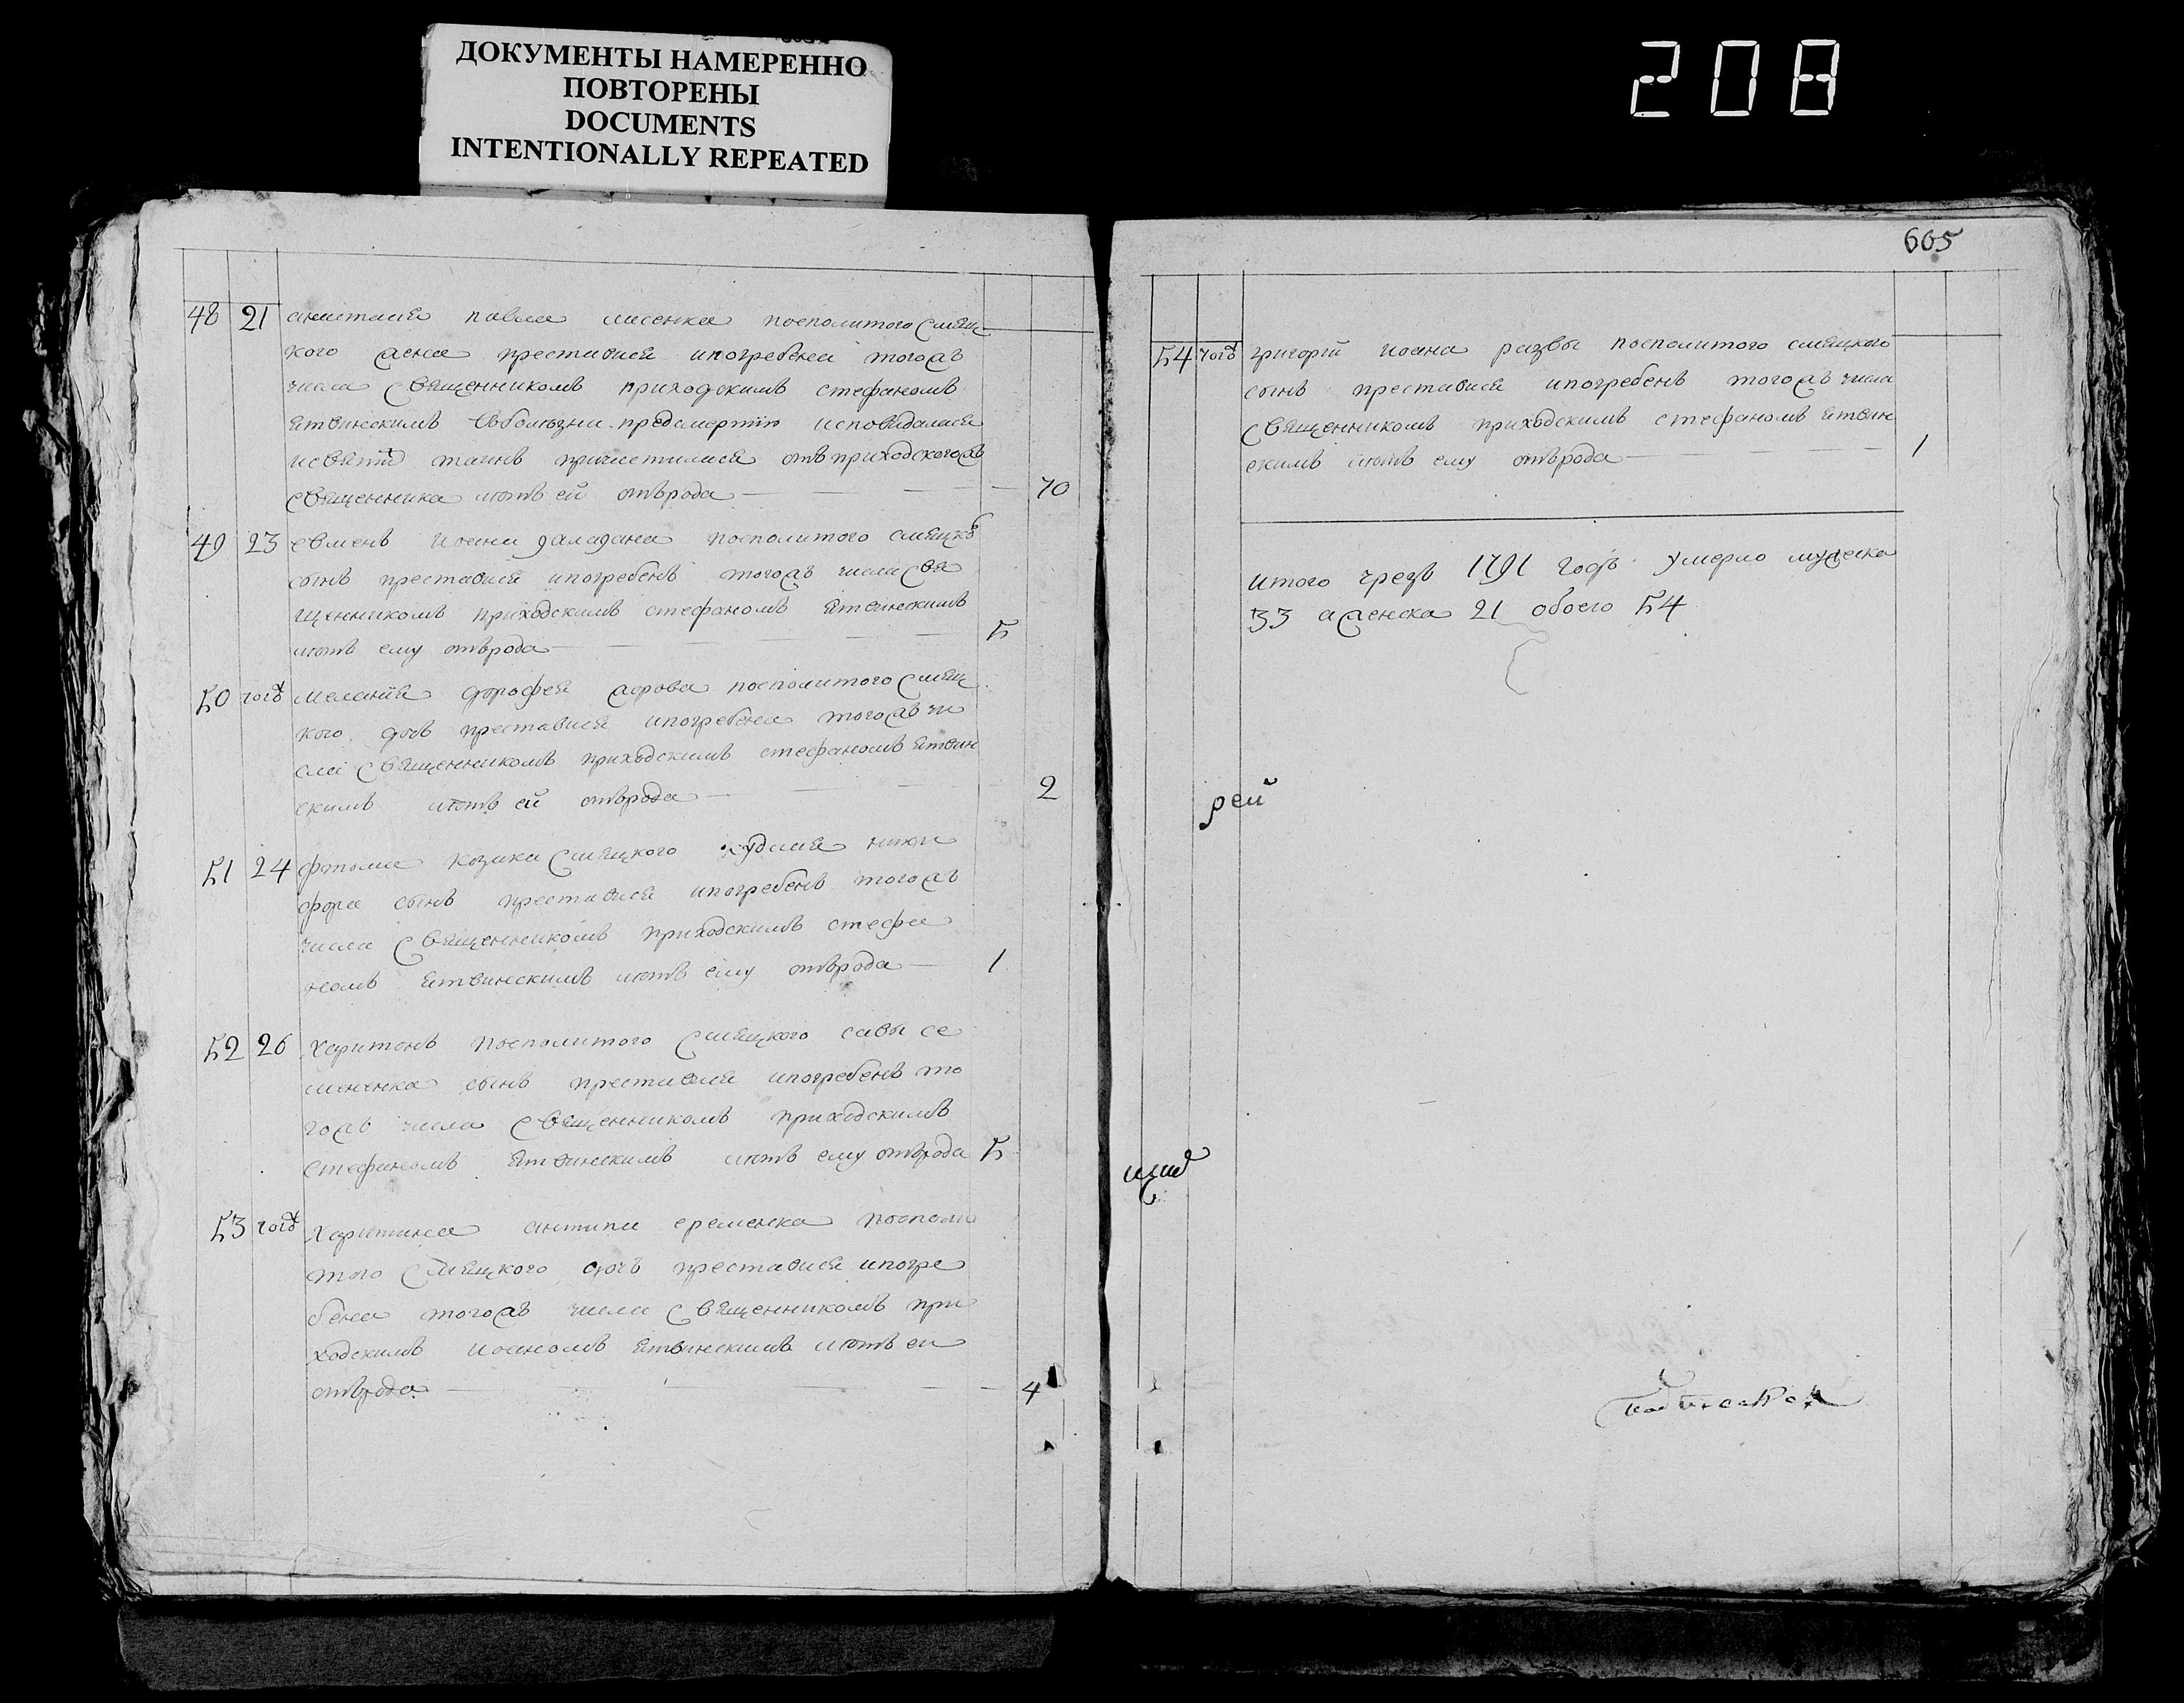 ДОКУМЕНТЫ НАМЕРЕННО
ПОВТОРЕНЫ
DOCUMENTS
INTENTIONALLY REPEATED
208
605
48 21 анастасия павла лисенка посполитого смяц
кого жена преставися ипогребена тогожъ
числа священникомъ приходскимъ стефаномъ
ятвинскимъ вболѣзни предсмертію исповѣдалася
исвятѣ таинъ причастилася отъприходскогожъ
священника лютъ ей отврода 70
49 23 евменъ иоана посполитого смяцкѡ
сынъ преставися ипогребенъ тогожъ числа свя
щенникомъ приходскимъ стефаномъ ятвинскимъ
лютъ ему отврода 5
50 тогѡ меланія дорофея посполитого смяц
кого дочь преставися ипогребена тогожъ чи
сла священникомъ приходскимъ стефаномъ ятвин
скимъ лютъ ей отврода 2
51 24 фтома козака смяцкого ники
фора сынъ преставися ипогребенъ тогожъ
числа священникомъ приходскимъ стефа
номъ ятвинскимъ лютъ ему отврода 1
52 26 харитонъ посполитого смяцкого савы се
мененка сынъ преставися ипогребенъ то
гожъ числа священникомъ приходскимъ
стефаномъ ятвинскимъ лютъ ему отврода 5
53 тогѡ харитина антипа еременка посполи
того смяцкого дочъ преставися ипогре
бена тогожъ числа священникомъ при
ходскимъ иоаномъ ятвинскимъ лютъ еи
отврода 4
54 тогѡ григорій иоана развы посполитого смяцкого
сынъ преставися ипогребенъ тогожъ числа
священникомъ приходскимъ стефаномъ ятвин
скимъ лютъ ему отврода 1
итого чрезъ 1791 годъ умерло мужеска
33 аженска 21 обоего 54
рей